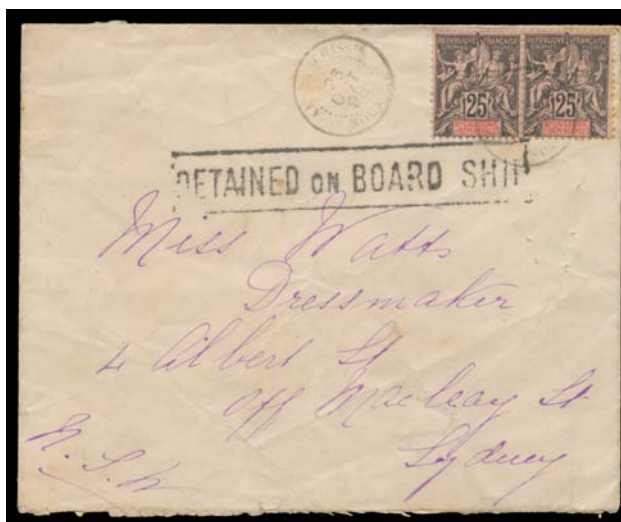 REPUBLIQUE FRANCAISE REPUBLIQUE FRANCAISE
25 25
DETAINED ON BOARD SHIP
Miss Watts
Dressmaker
4 Albert St
off Macleay St
Sydney
N.S.W